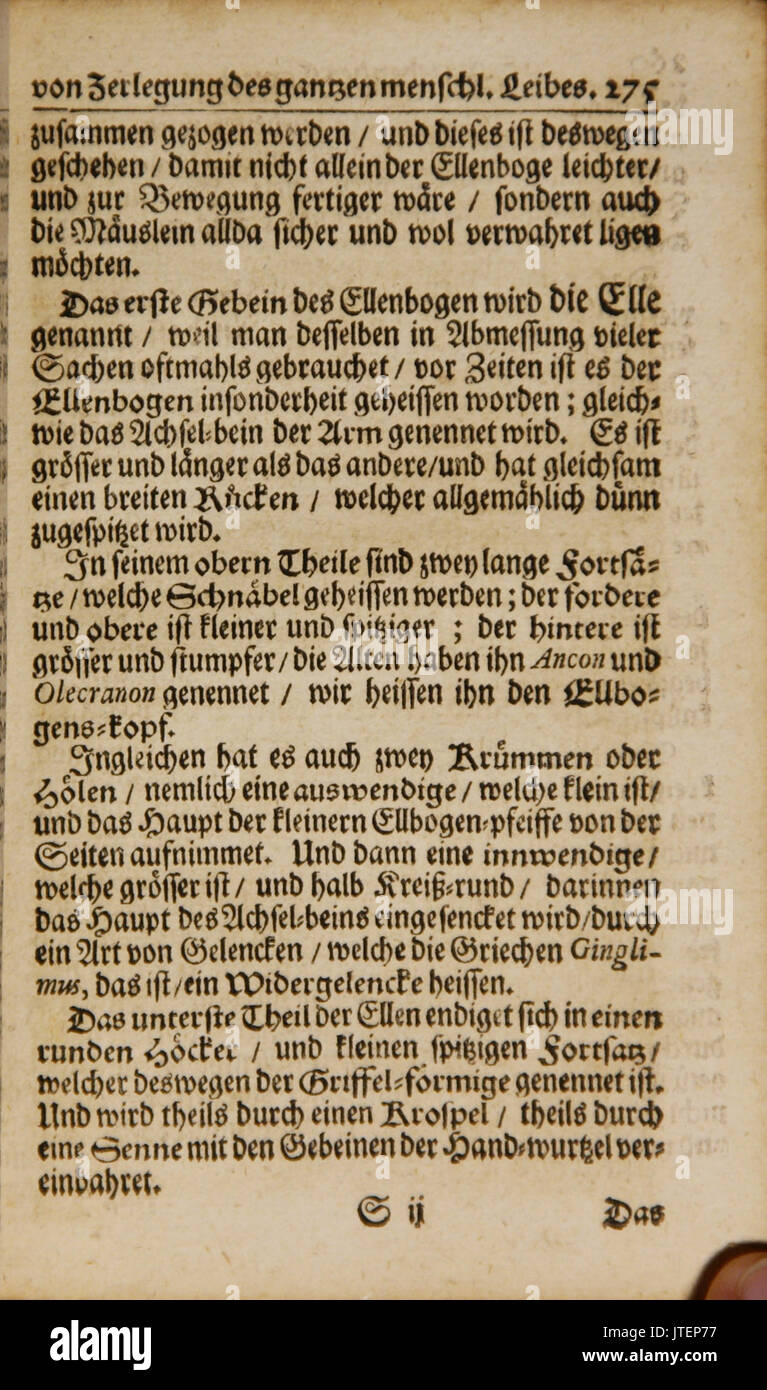 von Zerlegung des gantzen menschl. Leibes. 275
zusammen gezogen werden / und dieses ist deswegen
geschehen / damit nicht allein der Ellenboge leichter /
und zur Bewegung fertiger wäre / sondern auch
die Mäuslein allda sicher und wol verwahret ligen
möchten.
Das erste Gebein des Ellenbogen wird die Elle
genannt / weil man desselben in Abmessung vieler
Sachen oftmahls gebrauchet / vor Zeiten ist es der
Ellenbogen insonderheit geheissen worden ; gleich-
wie das Achsel-bein der Arm genennet wird. Es ist
grösser und länger als das andere / und hat gleichsam
einen breiten Rücken / welcher allgemählich dünn
zugespitzet wird.
In seinem obern Theile sind zwey lange Fortsä-
tze / welche Schnäbel geheissen werden ; der fordere
und obere ist kleiner und spitziger ; der hintere ist
grösser und stumpfer / die Alten haben ihn Ancon und
Olecranon genennet / wir heissen ihn den Ellbo-
gens-kopf.
Ingleichen hat es auch zwey Krümmen oder
Hölen / nemlich eine auswendige / welche klein ist /
und das Haupt der kleinern Ellbogen-pfeiffe von der
Seiten aufnimmet. Und dann eine innwendige /
welche grösser ist / und halb Kreiß-rund / darinnen
das Haupt des Achsel-beins eingesencket wird / durch
ein Art von Gelencken / welche die Griechen Gingli-
mus, das ist / ein Widergelencke heissen.
Das unterste Theil der Ellen endiget sich in einen
runden Höcker / und kleinen spitzigen Fortsatz /
welcher deswegen der Griffel-förmige genennet ist.
Und wird theils durch einen Krospel / theils durch
eine Senne mit den Gebeinen der Hand-wurtzel ver-
einbahret.
S ij Das
alamy
Image ID: JTEP77
www.alamy.com